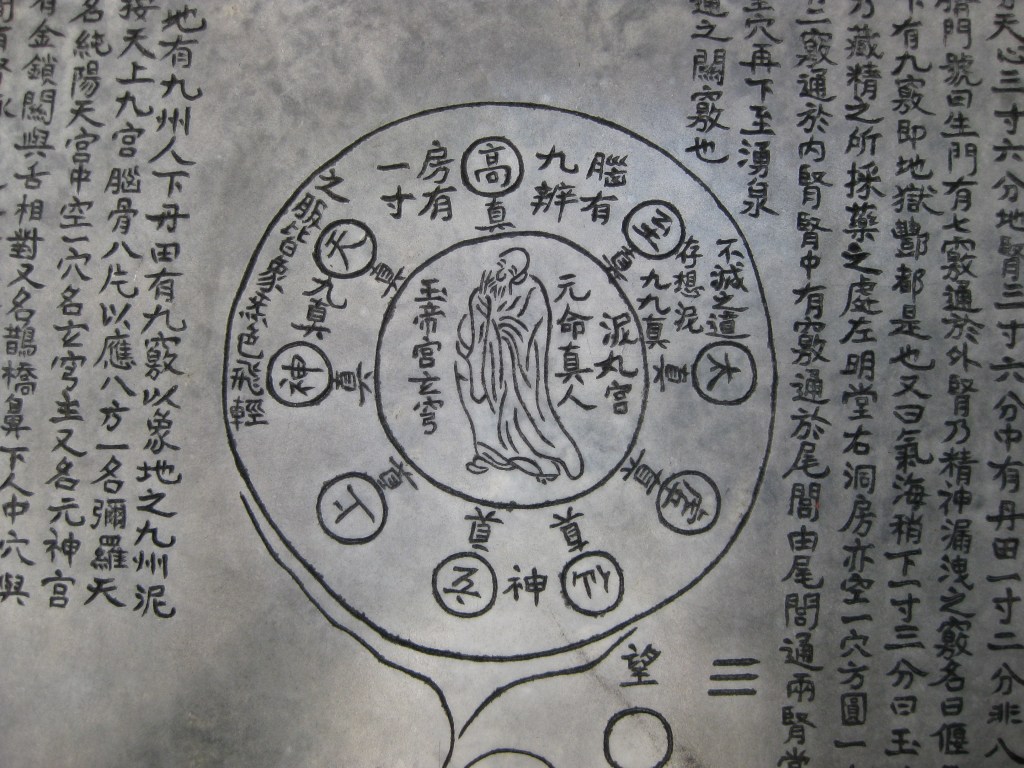 天心三寸六分地腎三寸六分中有丹田一寸二分非八
臍門號曰生門有七竅通於外腎乃精神漏洩之竅名曰偃
下有九竅即地獄酆都是也又曰氣海稍下一寸三分曰玉
乃藏精之所採藥之處左明堂右洞房亦空一穴方圓一
二竅通於內腎腎中有竅通於尾閭由尾閭通兩腎堂
穴再下至湧泉
通之關竅也
腦有
九瓣
房有
一寸
之服皆象
色飛輕
九真
不滅之道
存想泥
九九真
泥丸宮
元命真人
玉帝宮玄穹
高真
至真
太真
真
真
真
玄
上
神真
天真
神
望
三
地有九州人下丹田有九竅以象地之九州泥
按天上九宮腦骨八片以應八方一名彌羅天
名純陽天宮中空一穴名玄穹主又名元神宮
有金鎖關與舌相對又名鵲橋鼻下人中穴與